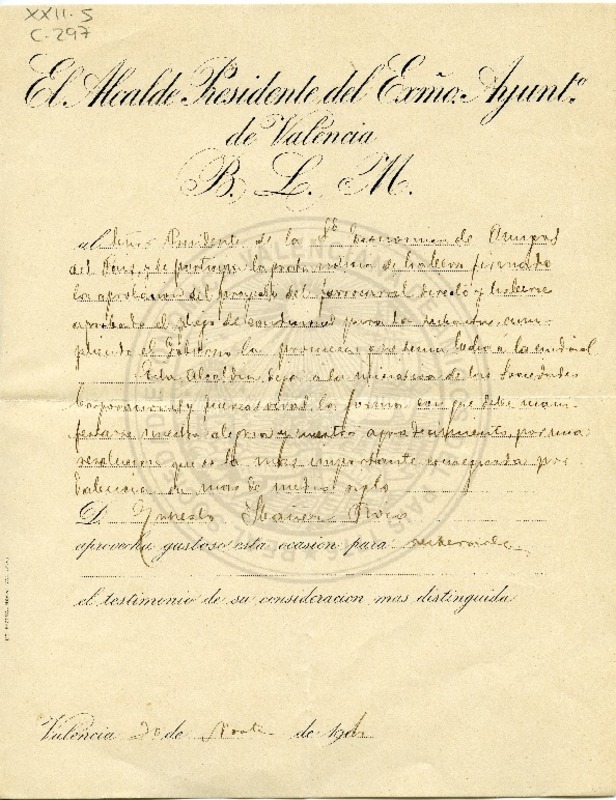 XXII-5
C-297
El Alcalde Presidente del Exmo. Ayunt.º
de Valéncia
B. L. M.
al Señor Presidente de la Económica de Amigos
del País, y le participa la grata noticia de haberse firmado
la aprobación del proyecto del ferrocarril directo y haberse
aprobado el pliego de condiciones para la subasta, cum-
pliendo el Gobierno la promesa que tenía hecha a la ciudad
Esta Alcaldía deja a la iniciativa de las Sociedades
Corporaciones y la forma con que debe mani-
festarse nuestra alegría y nuestro agradecimiento por una
resolución que es la mas importante conseguida por
Valencia de mas de medio siglo
D. Ernesto Ibáñez Rizo
aprovecha gustoso esta ocasión para reiterarle
el testimonio de su consideracion mas distinguida
Valéncia 20 de de 19